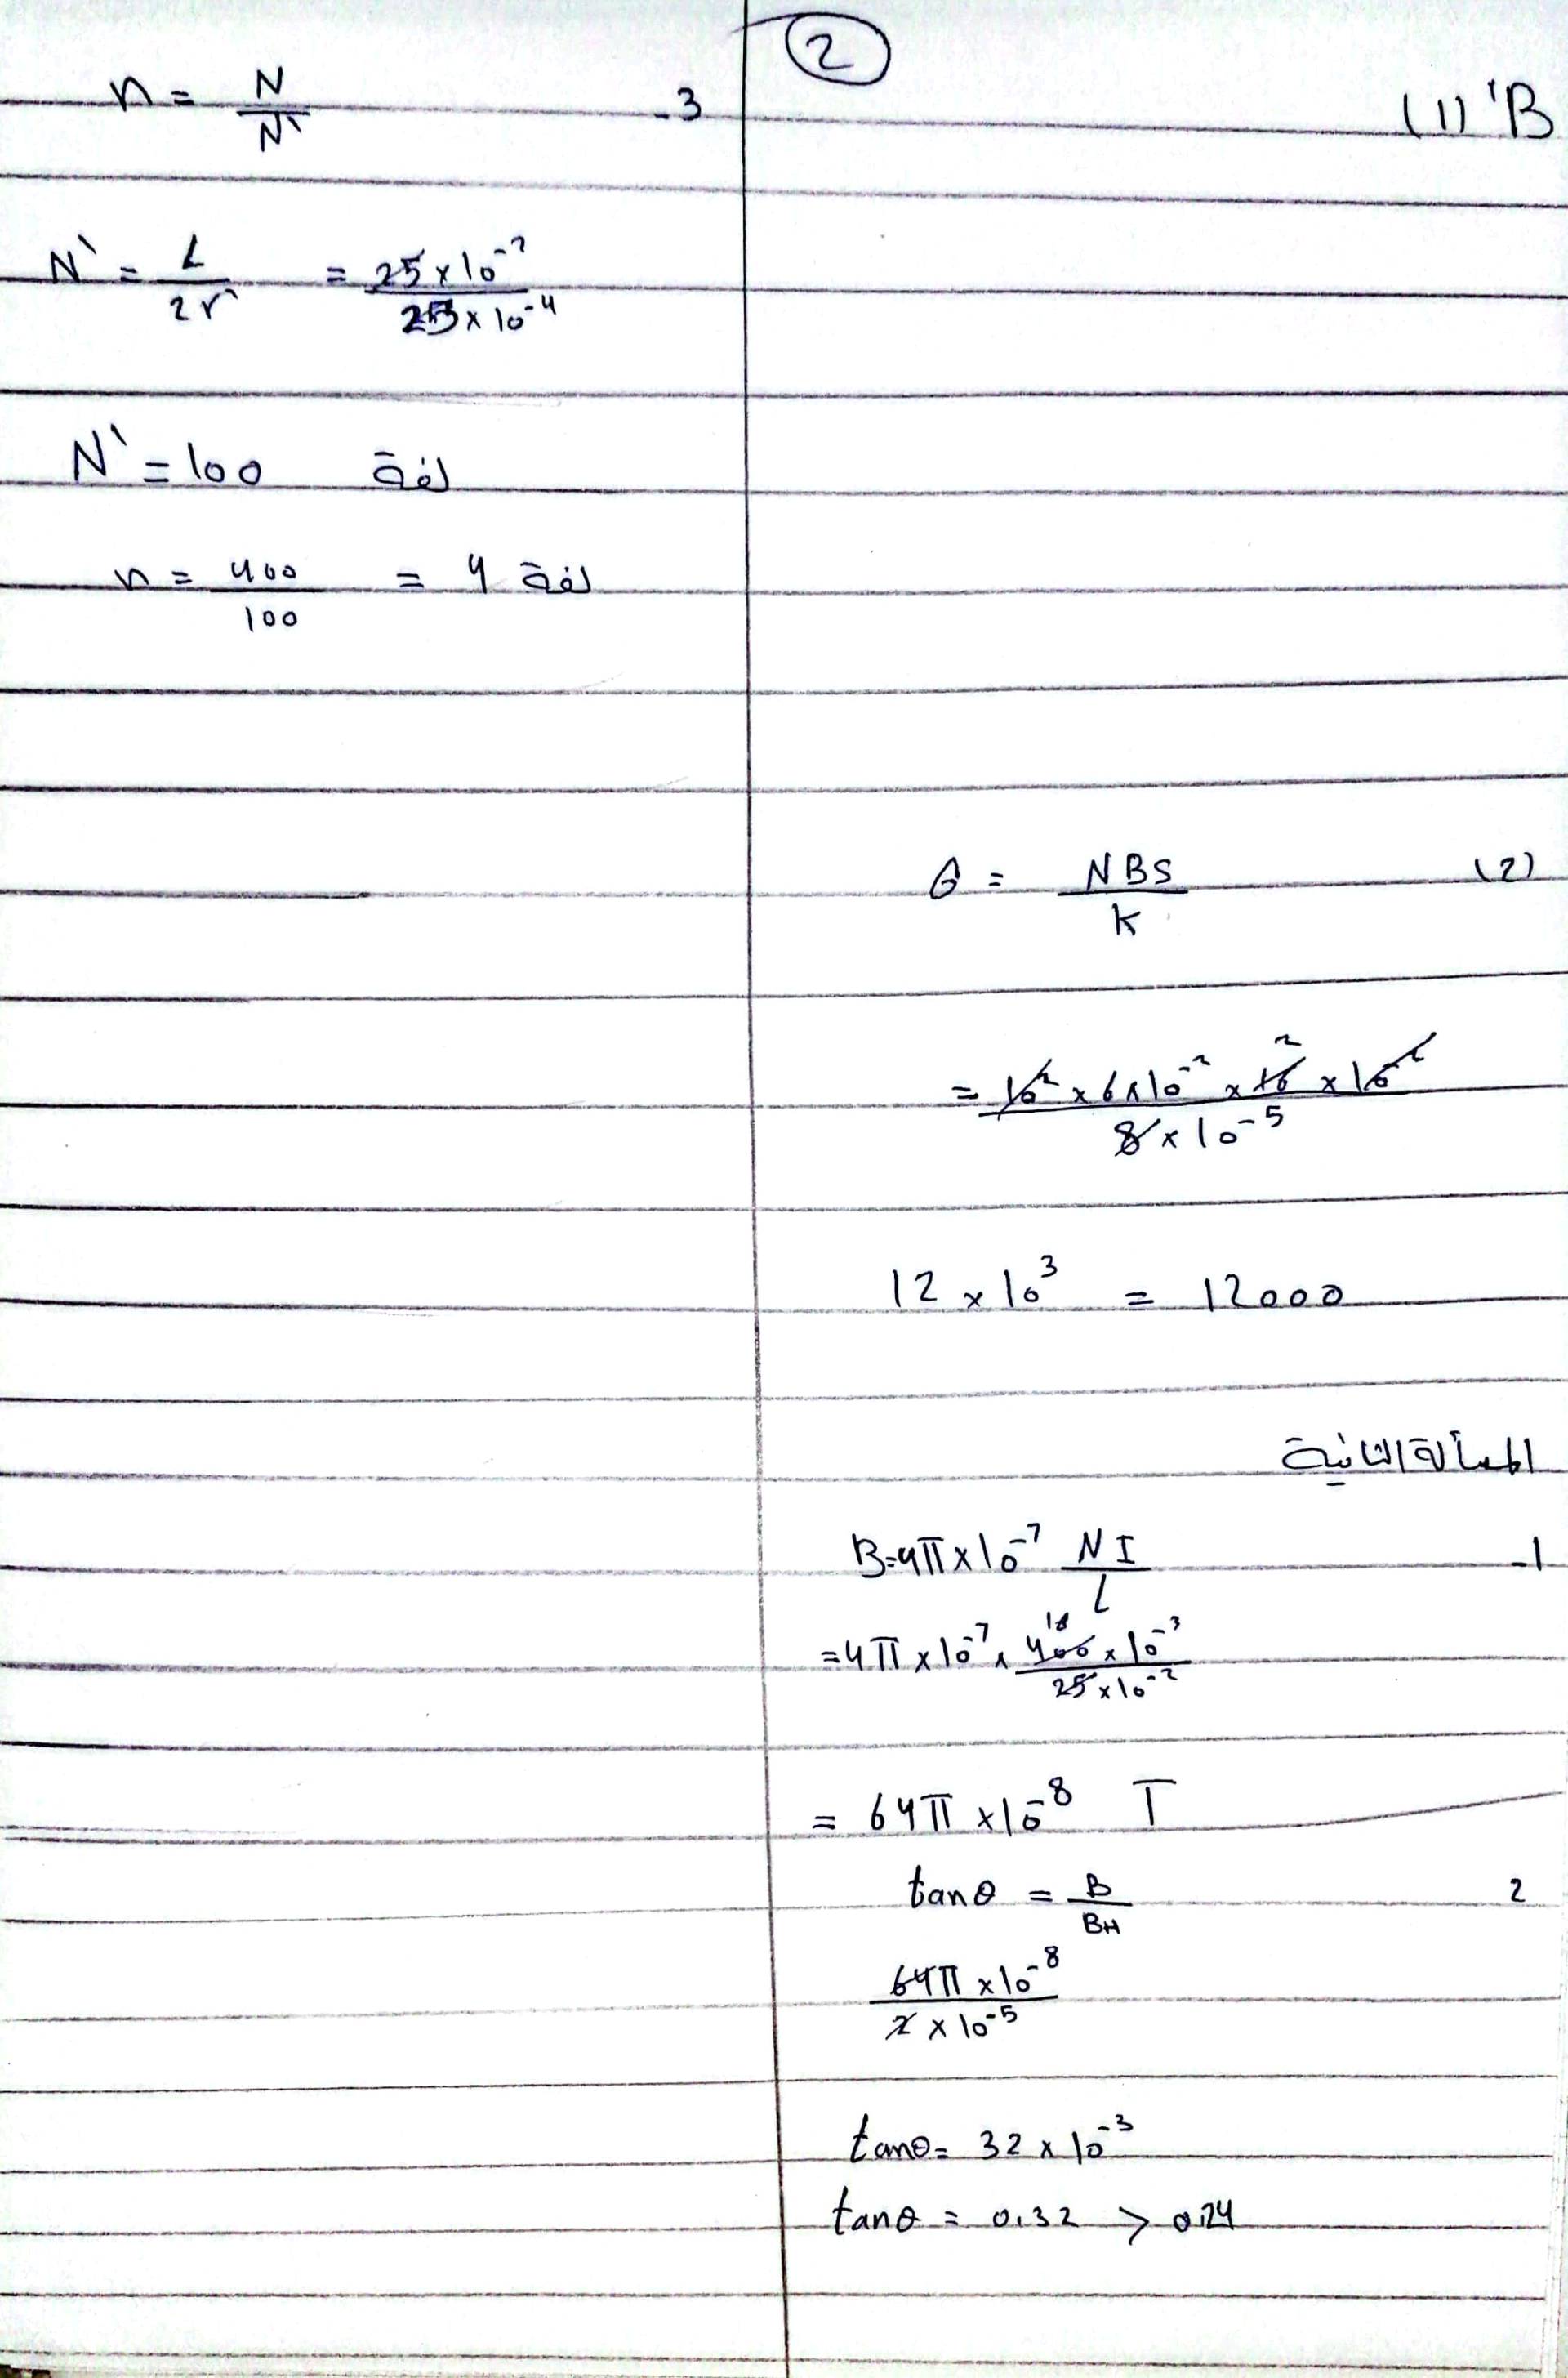 2
(1) 'B
(2) G = NBS / k
= 10² × 6×10⁻² × 16 × 10⁻² / 8 × 10⁻⁵
2
12 × 10³ = 12000
المسألة الثانية
1- B = 4π × 10⁻⁷ N I / L
= 4π × 10⁻⁷ × 400 × 10⁻³ / 25 × 10⁻²
16
= 64π × 10⁻⁸ T
2 tan θ = B / BH
64π × 10⁻⁸ / 2 × 10⁻⁵
tan θ = 32 × 10⁻³
tan θ = 0,32 > 0,24
3- n = N / N`
N` = L / 2r` = 25 × 10⁻² / 25 × 10⁻⁴
N` = 100 لفة
n = 400 / 100 = 4 لفة